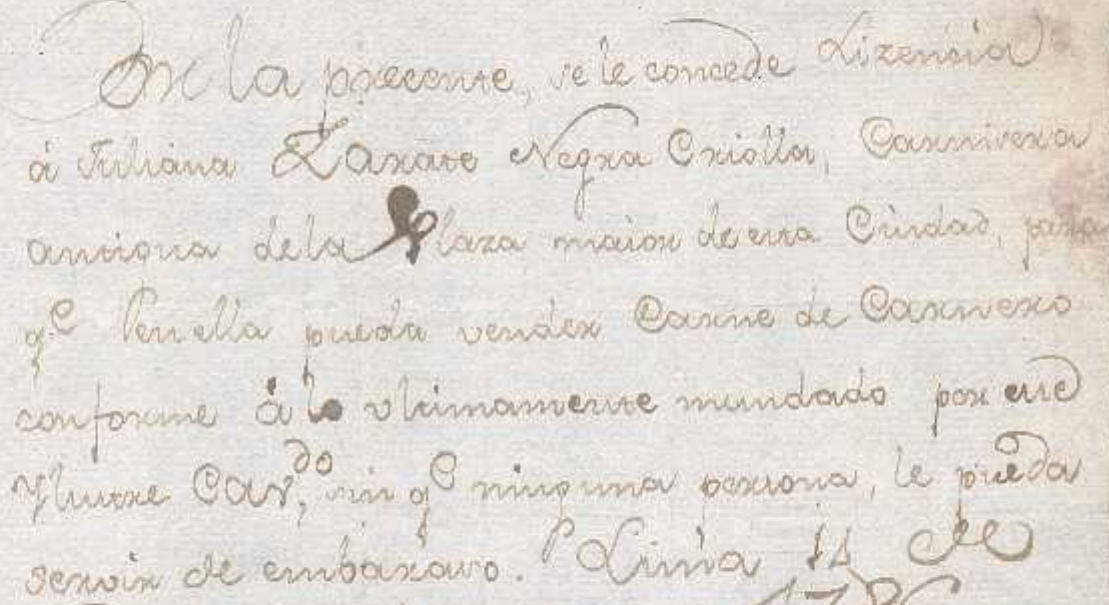 Por la precente, se le concede Lizencia
â Juliana Zarate Negra Criolla, Carnizera
antigua dela Plaza maior de esta Ciudad, para
q.e en ella pueda vender Carne de Carnero
conforme â lo vltimamente mandado por este
Yllustre Cav.do, sin q.e ninguna persona, le pueda
servir de embarazo. Lima 14 de